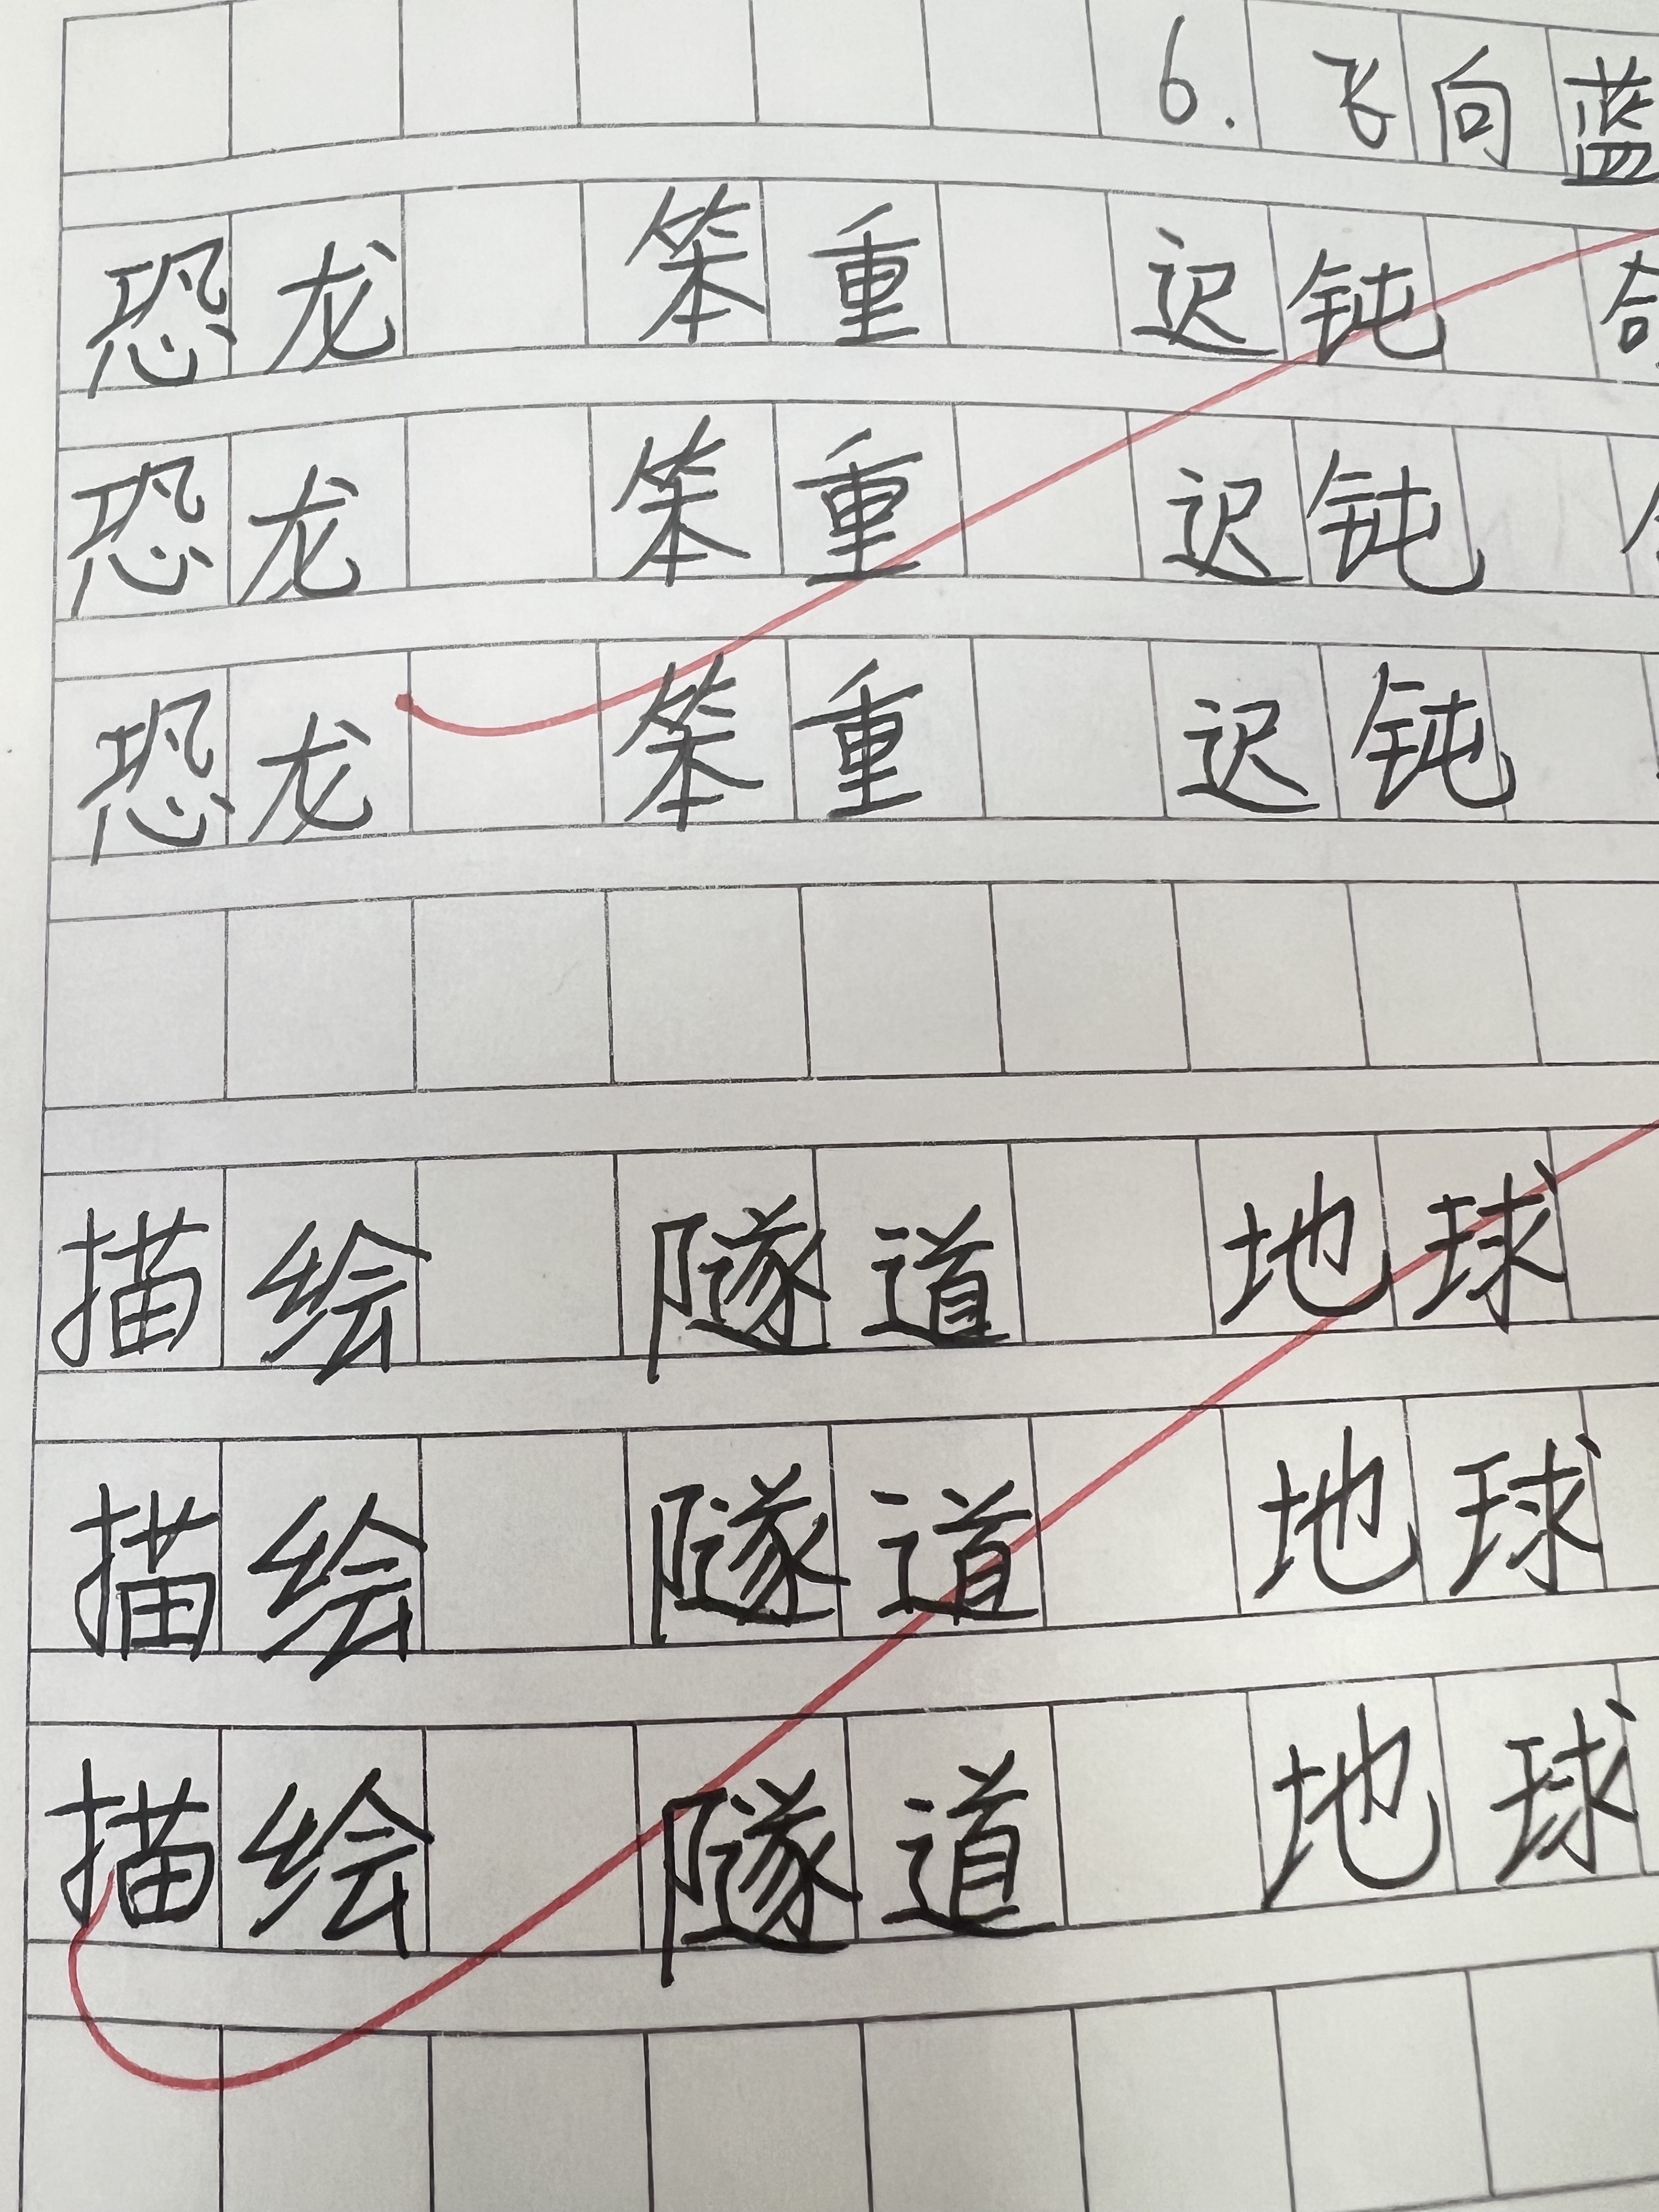 6. 飞向蓝
恐龙 笨重 迟钝
恐龙 笨重 迟钝
恐龙 笨重 迟钝
描绘 隧道 地球
描绘 隧道 地球
描绘 隧道 地球